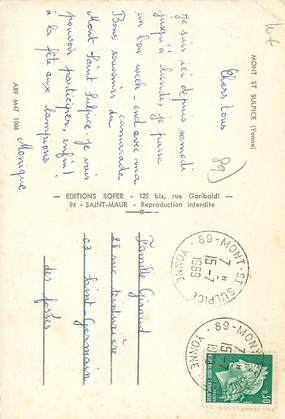 MONT ST SULPICE (Yonne)
Chers tous
je suis ici depuis samedi
jusqu'à lundi, je passe
un bon week-end avec ma
camarade
Bons souvenirs du
Mont Saint Sulpice. je vais
pouvoir participer, enfin!
à la fête aux lampions
Monique
ABY M47 1004
89
EDITIONS SOFER - 125 bis, rue Garibaldi
94 - SAINT-MAUR - Reproduction interdite
Famille Giraud
28 rue
03. Saint-Germain
des fossés
89 - MONT-ST SULPICE
YONNE
7 H
15-7
1969
89 - MONT-ST SULPICE
YONNE
7 H
15-7
0.30